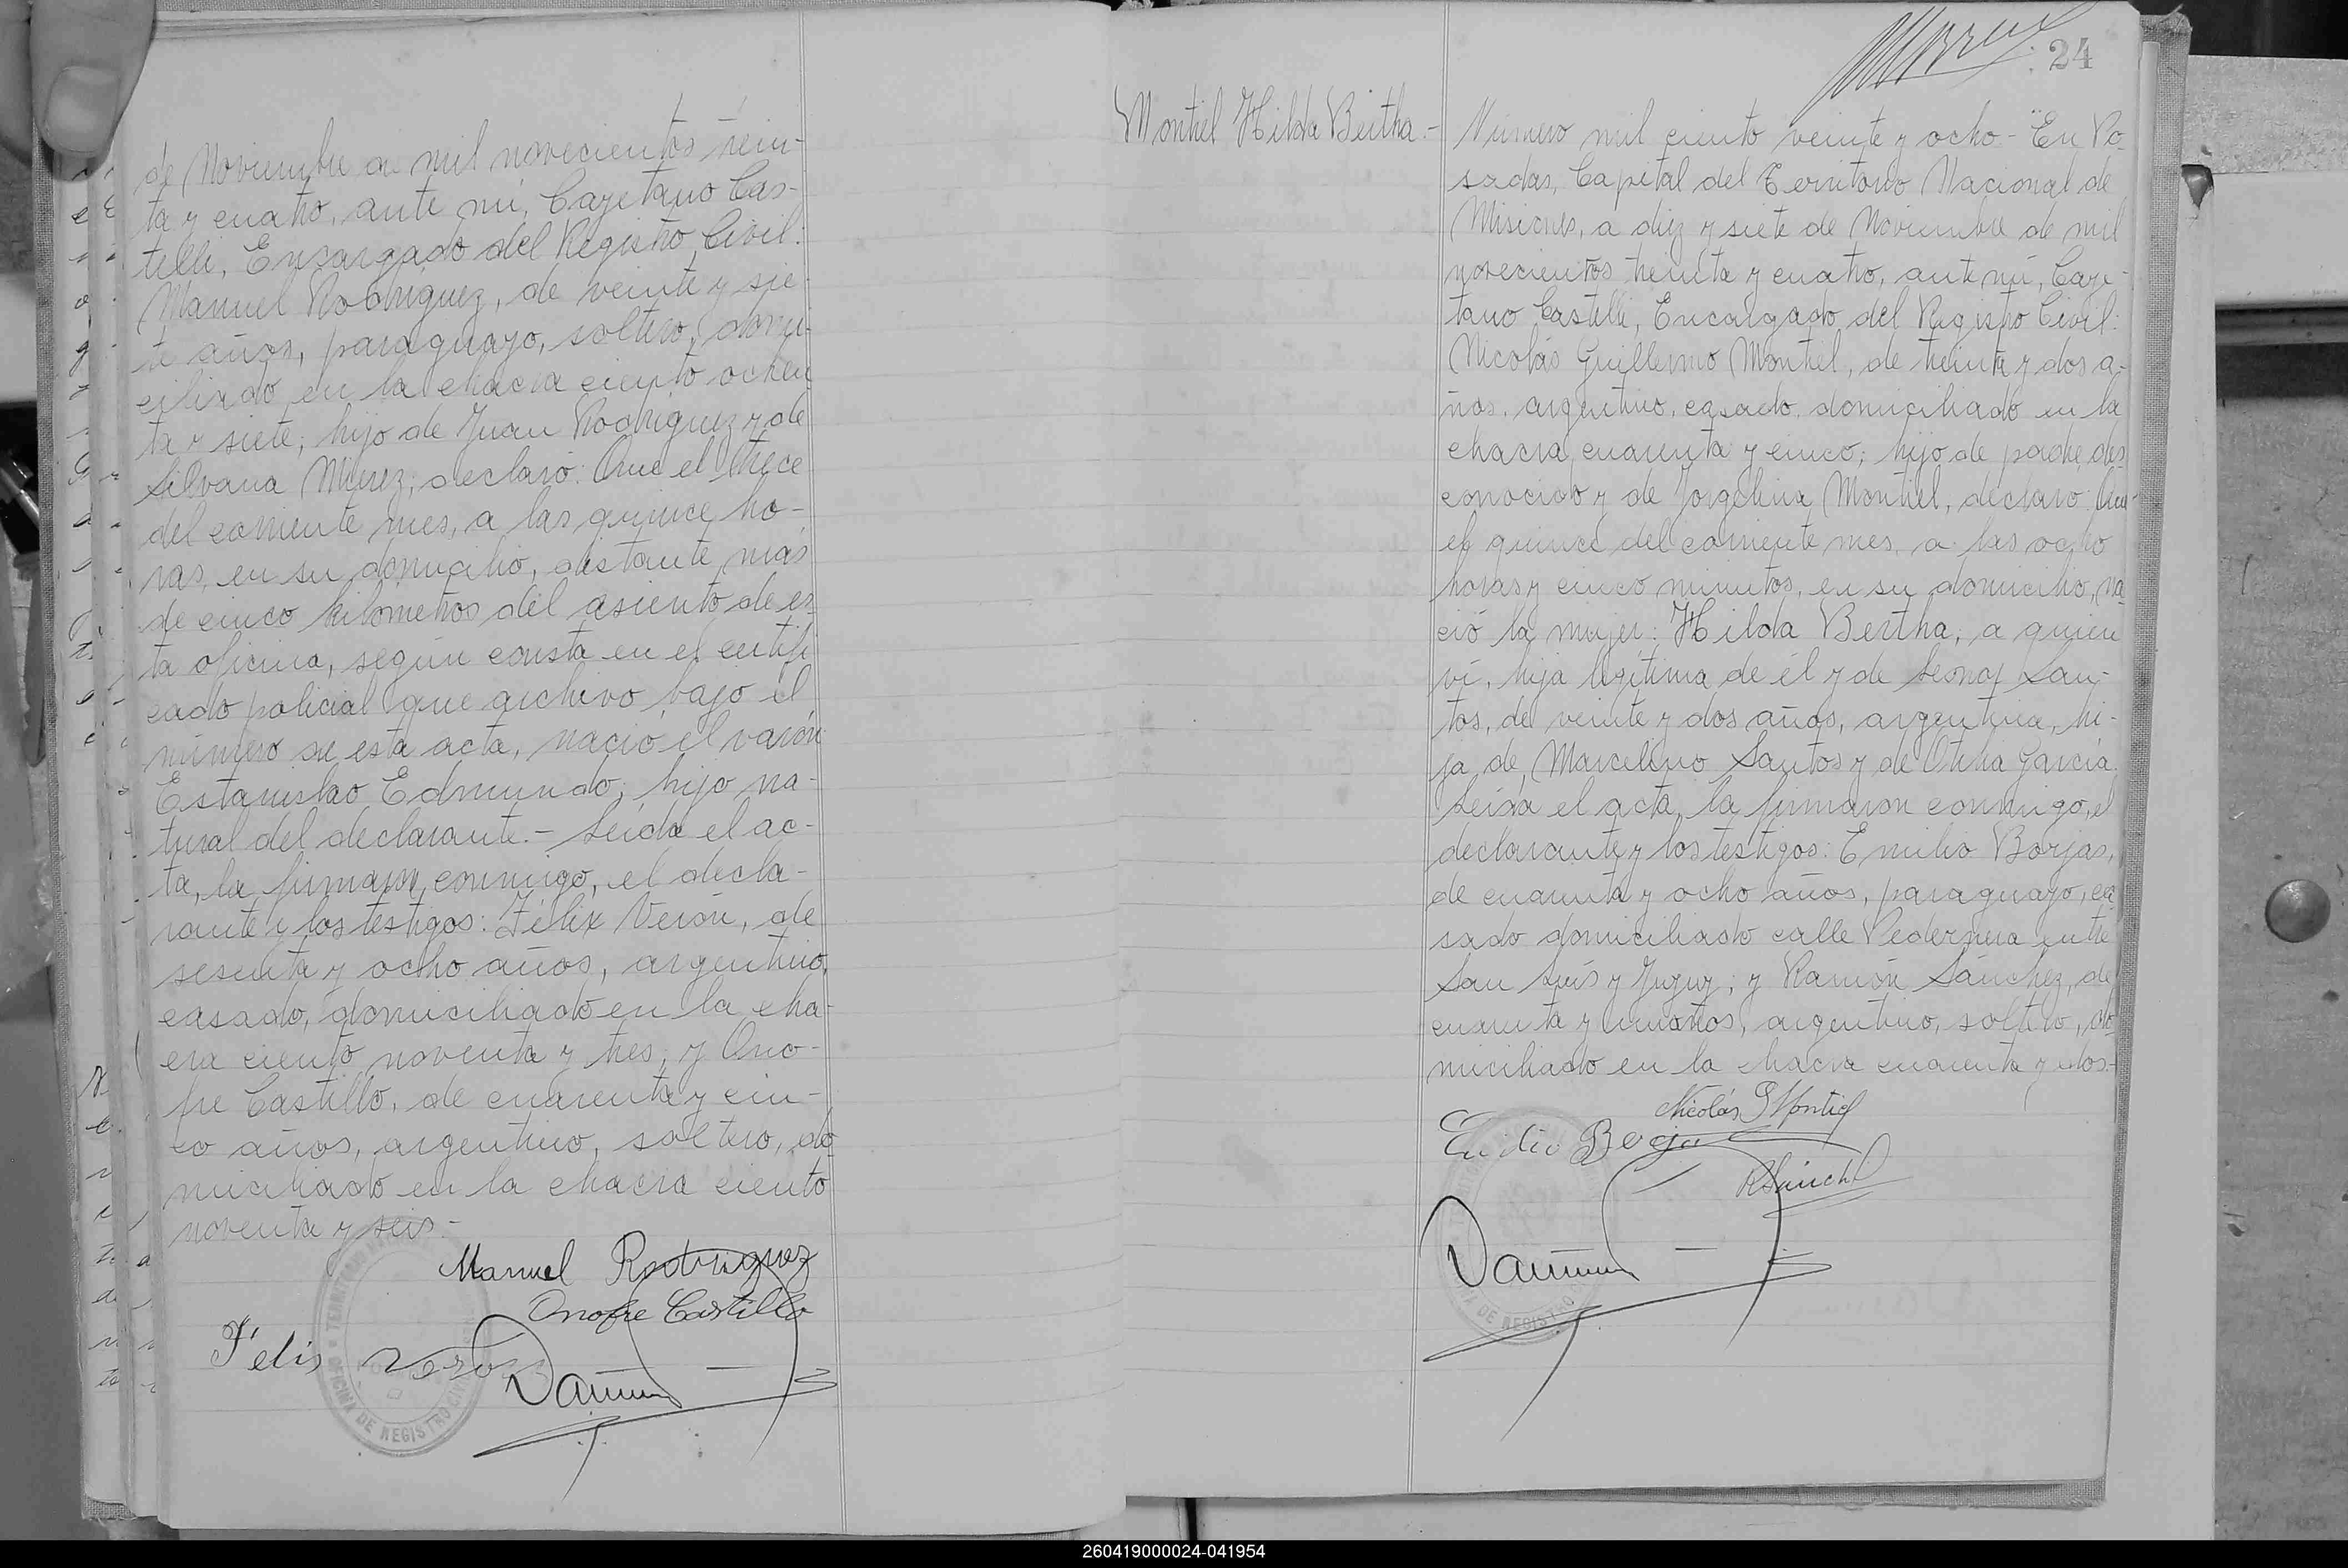 de Noviembre de mil novecientos trein-
ta y cuatro, ante mí, Cayetano Cas-
telli, Encargado del Registro Civil:
Manuel Rodriguez, de veinte y sie-
te años, paraguayo, soltero, domi-
ciliado en la chacra ciento ochen
ta y siete; hijo de Juan Rodriguez y de
Silvana declaró: Que el trece
del corriente mes, a las quince ho-
ras, en su domicilio, distante más
de cinco kilómetros del asiento de es
ta oficina, según consta en el certifi
cado policial que archivo bajo el
número de esta acta, nació el varón
Estanislao Edmundo; hijo na-
tural del declarante.- Leída el ac-
ta, la firmaron conmigo, el decla-
rante y los testigos: Félix Verón, de
sesenta y ocho años, argentino,
casado, domiciliado en la cha-
cra ciento noventa y tres; y Ono-
fre Castillo, de cuarenta y cin-
co años, argentino, soltero, do
miciliado en la chacra ciento
noventa y seis.-
Manuel Rodriguez
Onofre Castillo
Félis Veron
OFICINA DE REGISTRO CIVIL
24
Montiel Hilda Bertha.-
Número mil ciento veinte y ocho - En Po
sadas, Capital del Territorio Nacional de
Misiones, a diez y siete de Noviembre de mil
novecientos treinta y cuatro, ante mí, Caye-
tano Castelli, Encargado del Registro Civil:
Nicolás Guillermo Montiel, de treinta y dos a-
ños, argentino, casado, domiciliado en la
chacra cuarenta y cinco; hijo de padre des
conocido y de Jorgelina Montiel, declaró: Que
el quince del corriente mes, a las ocho
horas y cinco minutos, en su domicilio, na
ció la mujer: Hilda Bertha; a quien
ví, hija legítima de él y de Leonor San-
tos, de veinte y dos años, argentina, hi-
ja de Marcelino Santos y de Otilia García.
Leída el acta, la firmaron conmigo, el
declarante y los testigos: Emilio Borjas,
de cuarenta y ocho años, paraguayo, ca
sado domiciliado calle Pedernera entre
San Luis y Jujuy; y Ramón Sánchez, de
cuarenta y un años, argentino, soltero, do
miciliado en la chacra cuarenta y dos.-
Nicolás G Montiel
Emilio Borja
RSánchez
DE REGISTRO
260419000024-041954